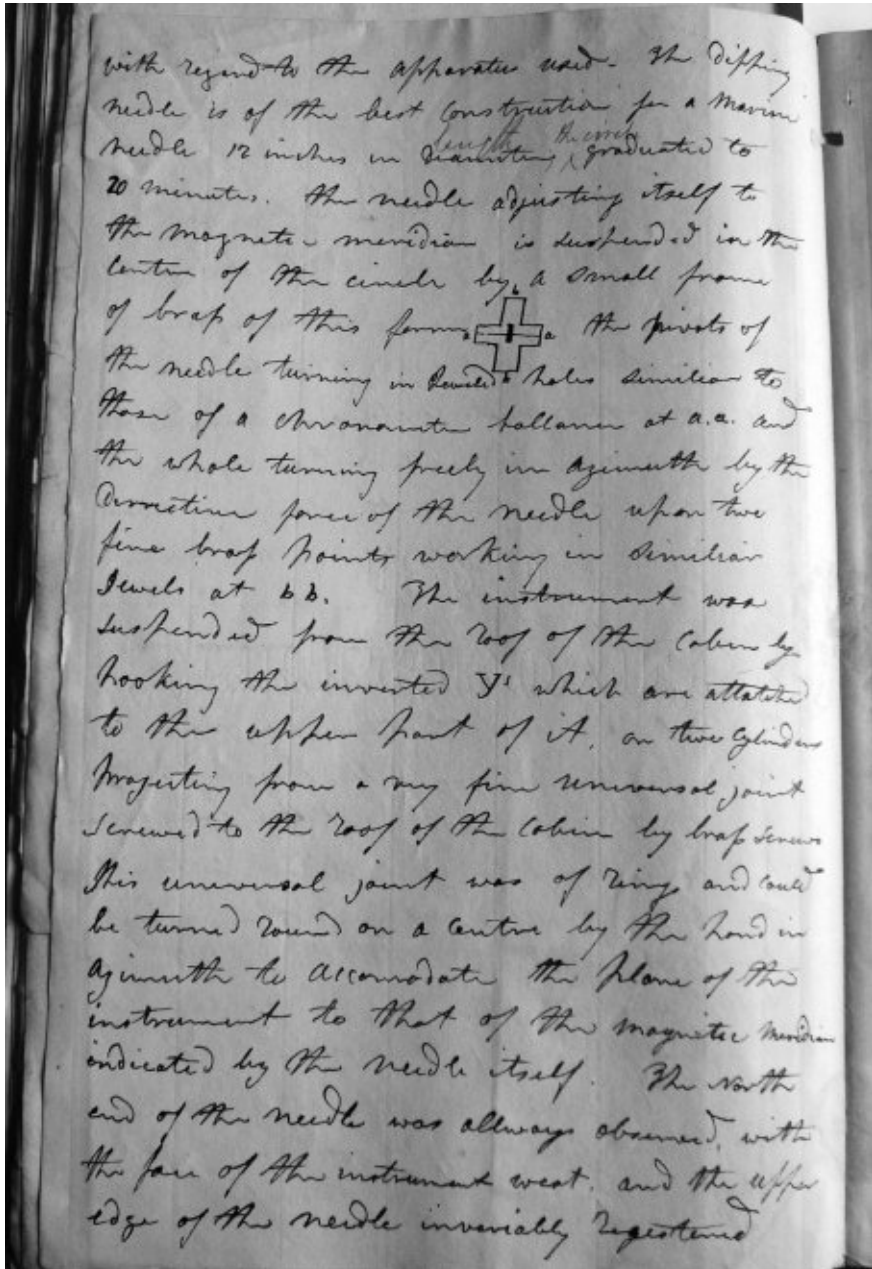 with regard to the apparatus used. The dipping
needle is of the best construction for a marine
needle 12 inches in diameter length the circle graduated to
20 minutes. the needle adjusting itself to
the magnetic meridian is suspended in the
centre of the circle by a small frame
of brass of this form b a a b the pivots of
the needle turning in Jeweled holes similiar to
those of a chronometer ballance at a.a. and
the whole turning freely in azimuth by the
directive force of the needle upon two
fine brass points working in similiar
Jewels at b b. The instrument was
suspended from the roof of the cabin by
hooking the inverted Ys which are attatched
to the upper part of it, on two cylinders
projecting from a very fine universal joint
screwed to the roof of the cabin by brass screws
This universal joint was of rings and could
be turned round on a centre by the hand in
azimuth to accomodate the plane of the
instrument to that of the magnetic meridian
indicated by the needle itself. The North
end of the needle was allways observed, with
the face of the instrument west. and the upper
edge of the needle invariably registered